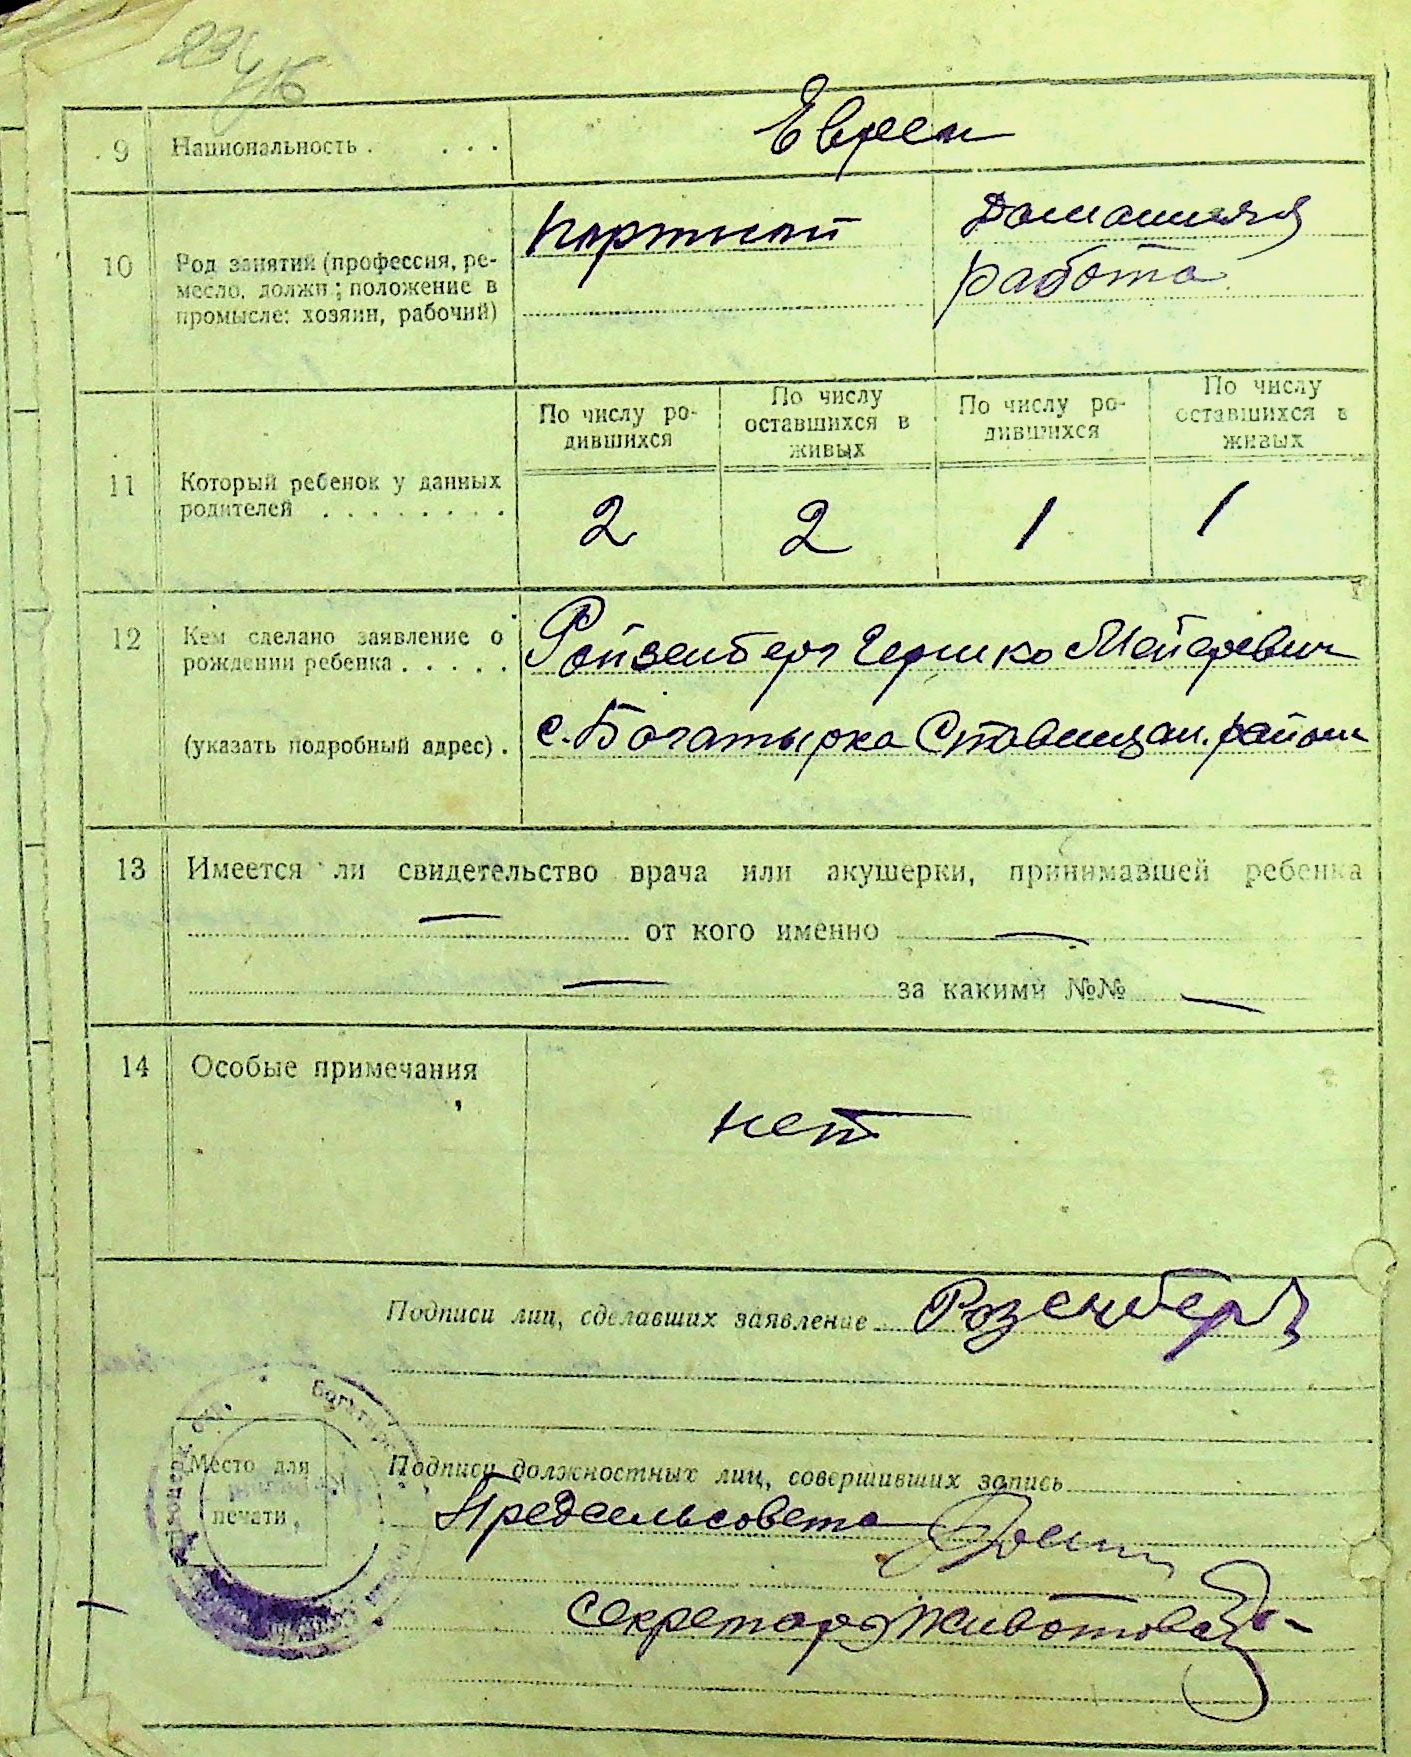 9 Национальность . . . . Евреи
10 Род занятий (профессия, ре-
месло, должн; положение в
промысле: хозяин, рабочий)
Портной
Домашняя
работа
11 Который ребенок у данных
родителей . . . . . . . .
По числу ро-
дившихся
По числу
оставшихся в
живых
По числу ро-
дившихся
По числу
оставшихся в
живых
2 2 1 1
12 Кем сделано заявление о
рождении ребенка . . . . .
Ройзенберг Гершко Мейерович
(указать подробный адрес) . с. Богатырка Ставищан. района
13 Имеется ли свидетельство врача или акушерки, принимавшей ребенка
— от кого именно —
— за какими №№ —
14 Особые примечания
нет
Подписи лиц, сделавших заявление Розенберг
Место для
печати
Подписи должностных лиц, совершивших запись
Предсельсовета
Секретарь